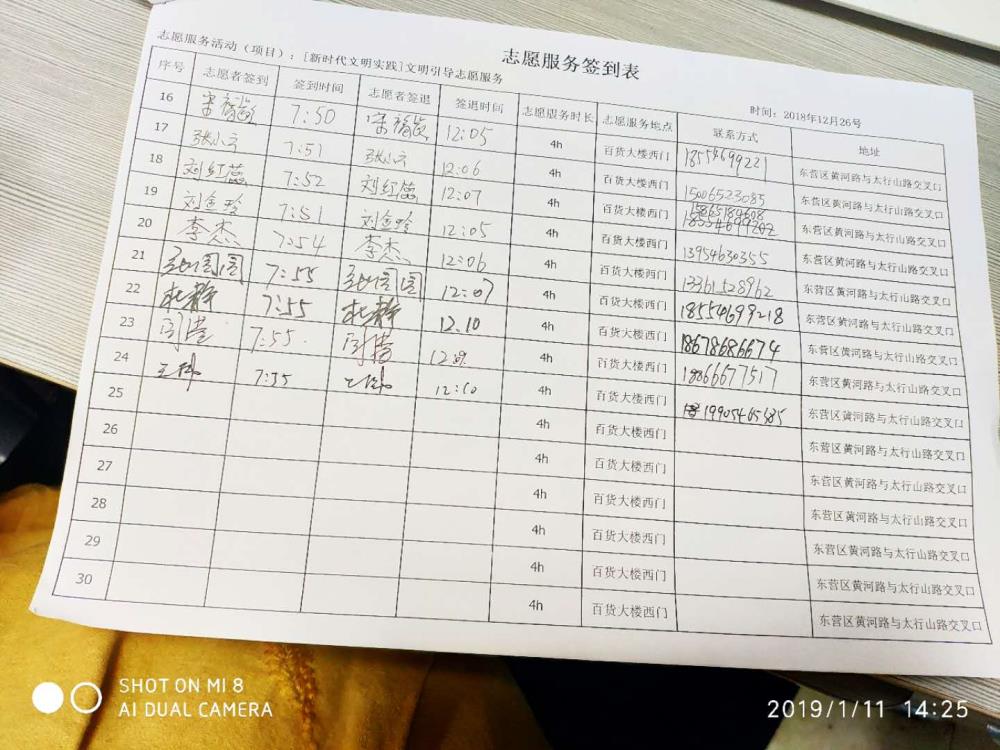 志愿服务签到表
志愿服务活动（项目）：[新时代文明实践]文明引导志愿服务
时间：2018年12月26号
序号 志愿者签到 签到时间 志愿者签退 签退时间 志愿服务时长 志愿服务地点 联系方式 地址
16 7:50 12:05 4h 百货大楼西门 东营区黄河路与太行山路交叉口
17 张小云 7:51 张小云 12:06 4h 百货大楼西门 15006523085 东营区黄河路与太行山路交叉口
18 刘红蕊 7:52 刘红蕊 12:07 4h 百货大楼西门 东营区黄河路与太行山路交叉口
19 刘金玲 7:51 刘金玲 12:05 4h 百货大楼西门 13954630355 东营区黄河路与太行山路交叉口
20 李杰 7:54 李杰 12:06 4h 百货大楼西门 13361528962 东营区黄河路与太行山路交叉口
21 7:55 12:07 4h 百货大楼西门 18554699218 东营区黄河路与太行山路交叉口
22 杜静 7:55 杜静 12.10 4h 百货大楼西门 18678686674 东营区黄河路与太行山路交叉口
23 7:55 4h 百货大楼西门 18866677517 东营区黄河路与太行山路交叉口
24 7:55 12:10 4h 百货大楼西门 19905465585 东营区黄河路与太行山路交叉口
25 4h 百货大楼西门 东营区黄河路与太行山路交叉口
26 4h 百货大楼西门 东营区黄河路与太行山路交叉口
27 4h 百货大楼西门 东营区黄河路与太行山路交叉口
28 4h 百货大楼西门 东营区黄河路与太行山路交叉口
29 4h 百货大楼西门 东营区黄河路与太行山路交叉口
30 4h 百货大楼西门 东营区黄河路与太行山路交叉口
SHOT ON MI 8
AI DUAL CAMERA
2019/1/11 14:25